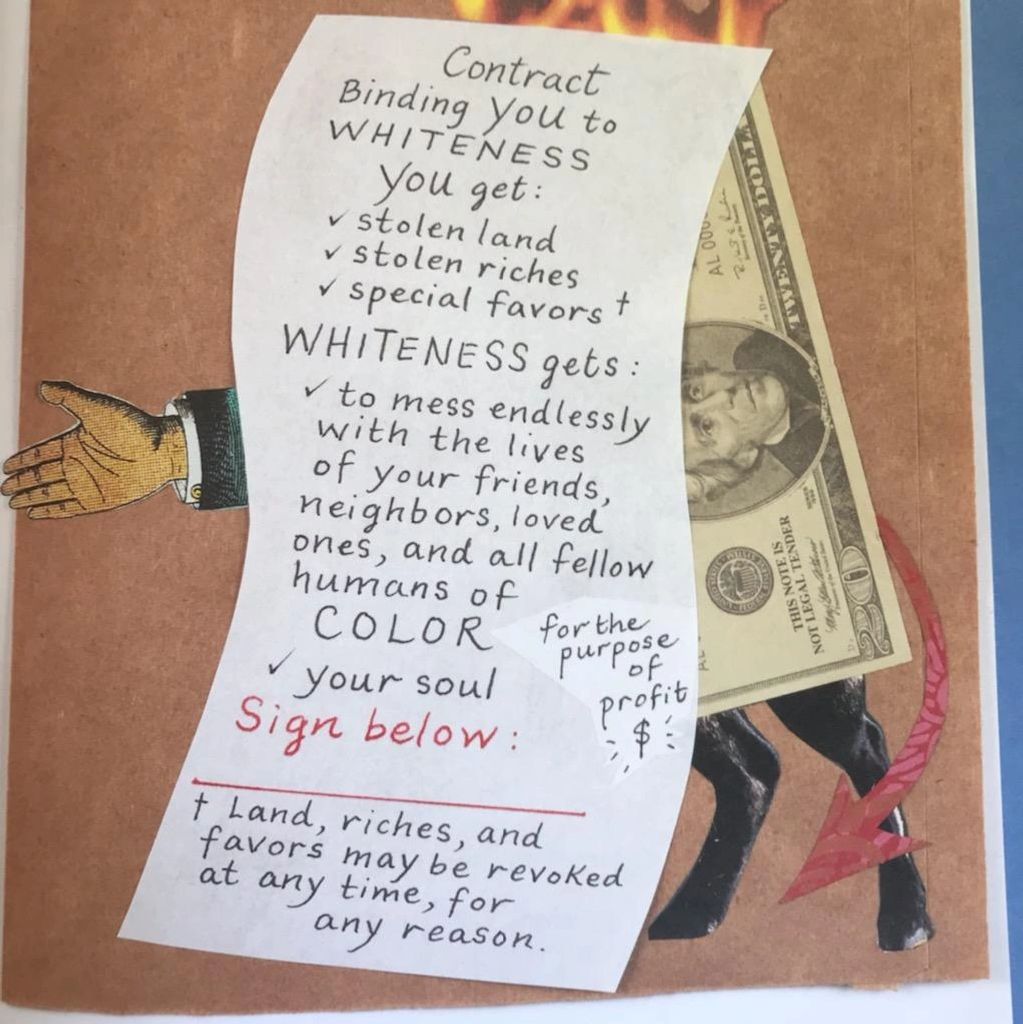 Contract
Binding you to
WHITENESS
You get:
✓ stolen land
✓ stolen riches
✓ special favors †
WHITENESS gets:
✓ to mess endlessly
with the lives
of your friends,
neighbors, loved
ones, and all fellow
humans of
COLOR
for the
purpose
of
profit
$
✓ your soul
Sign below:
† Land, riches, and
favors may be revoked
at any time, for
any reason.
AL 000
TWENTY DOLL
THIS NOTE IS
NOT LEGAL TENDER
20